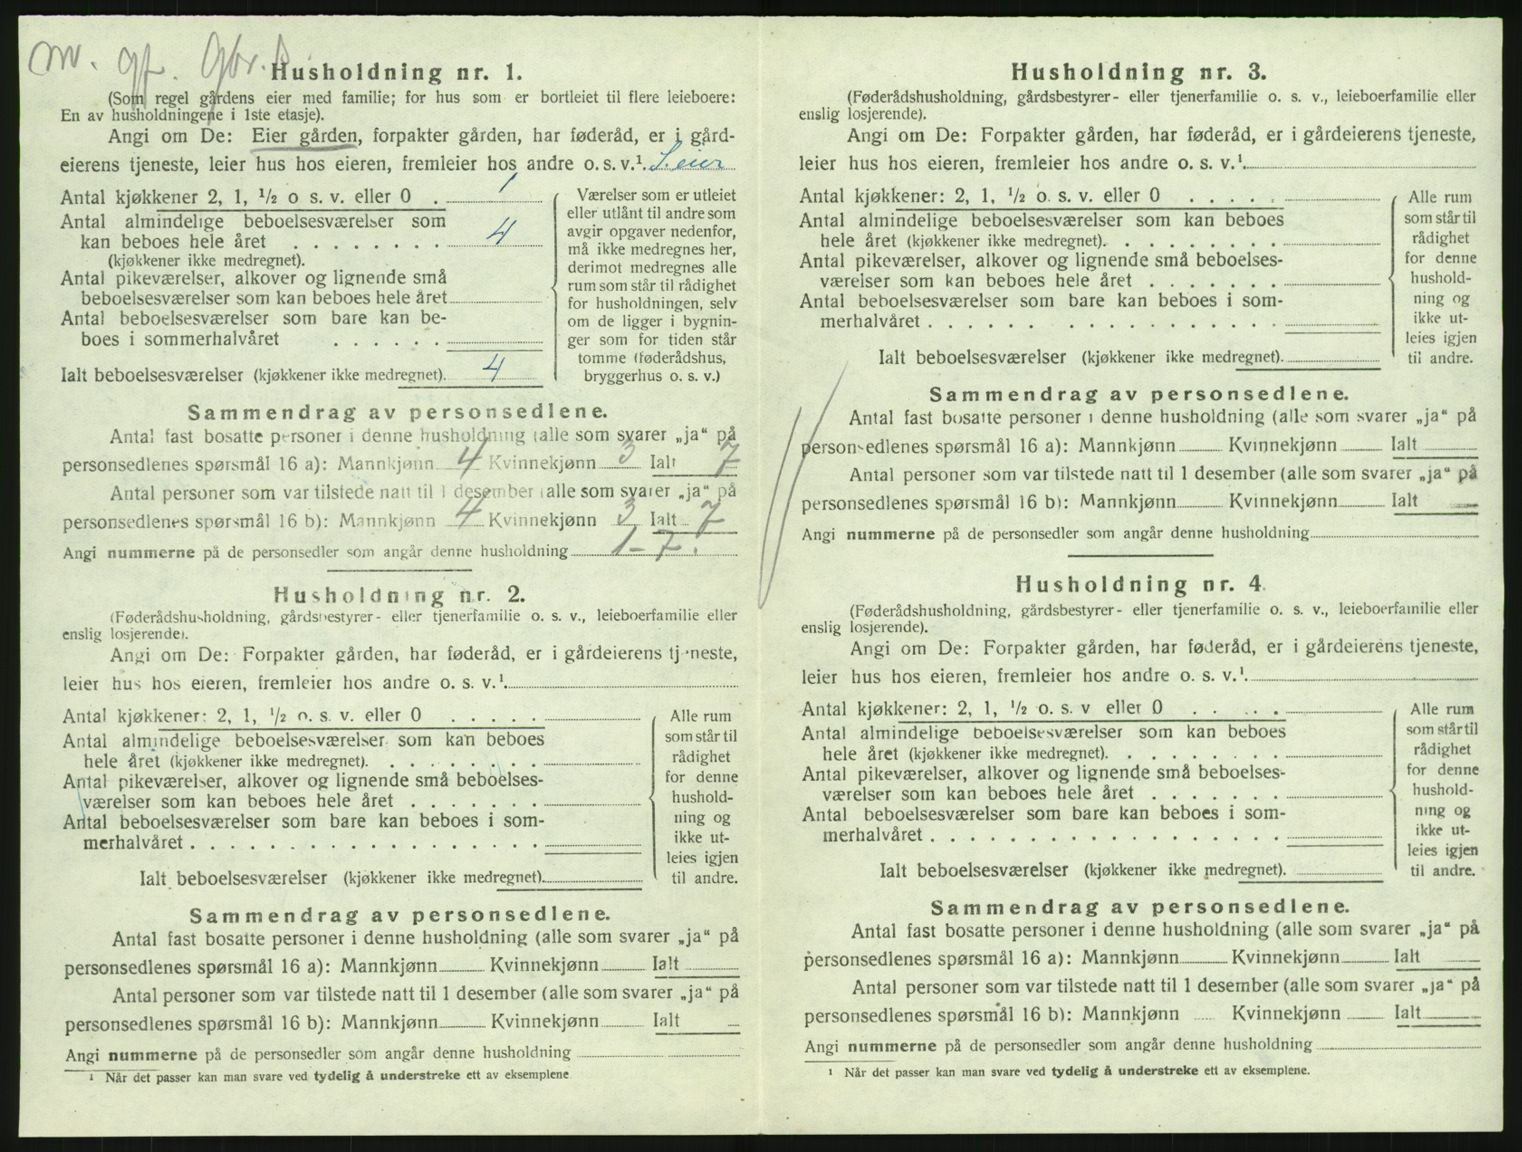 m. gf. Gbr.
Husholdning nr. 1.
(Som regel gårdens eier med familie; for hus som er bortleiet til flere leieboere:
En av husholdningene i 1ste etasje).
Angi om De: Eier gården, forpakter gården, har føderåd, er i gård-
eierens tjeneste, leier hus hos eieren, fremleier hos andre o. s. v.¹. eier
Antal kjøkkener 2, 1, ½ o s. v. eller 0 . 1
Antal almindelige beboelsesværelser som
kan beboes hele året . . . . . . . . 4
(kjøkkener ikke medregnet).
Antal pikeværelser, alkover og lignende små
beboelsesværelser som kan beboes hele året
Antal beboelsesværelser som bare kan be-
boes i sommerhalvåret . . . . . .
Ialt beboelsesværelser (kjøkkener ikke medregnet). 4
Værelser som er utleiet
eller utlånt til andre som
avgir opgaver nedenfor,
må ikke medregnes her,
derimot medregnes alle
rum som står til rådighet
for husholdningen, selv
om de ligger i bygnin-
ger som for tiden står
tomme (føderådshus,
bryggerhus o. s. v.)
Sammendrag av personsedlene.
Antal fast bosatte personer i denne husholdning (alle som svarer „ja“ på
personsedlenes spørsmål 16 a): Mannkjønn 4 Kvinnekjønn 3 Ialt 7
Antal personer som var tilstede natt til 1 desember (alle som svarer „ja“ på
personsedlenes spørsmål 16 b): Mannkjønn 4 Kvinnekjønn 3 Ialt 7
Angi nummerne på de personsedler som angår denne husholdning 1-7.
Husholdning nr. 2.
(Føderådshusholdning, gårdsbestyrer- eller tjenerfamilie o. s. v., leieboerfamilie eller
enslig losjerende).
Angi om De: Forpakter gården, har føderåd, er i gårdeierens tjeneste,
leier hus hos eieren, fremleier hos andre o. s. v.¹.
Antal kjøkkener: 2, 1, ½ o. s. v. eller 0 . . . . .
Antal almindelige beboelsesværelser som kan beboes
hele året (kjøkkener ikke medregnet). . . . . . . . .
Antal pikeværelser, alkover og lignende små beboelses-
værelser som kan beboes hele året . . . . . . .
Antal beboelsesværelser som bare kan beboes i som-
merhalvåret . . . . . . . . . . . . . . . . . .
Ialt beboelsesværelser (kjøkkener ikke medregnet).
Alle rum
som står til
rådighet
for denne
hushold-
ning og
ikke ut-
leies igjen
til andre.
Sammendrag av personsedlene.
Antal fast bosatte personer i denne husholdning (alle som svarer „ja“ på
personsedlenes spørsmål 16 a): Mannkjønn Kvinnekjønn Ialt
Antal personer som var tilstede natt til 1 desember (alle som svarer „ja“ på
personsedlenes spørsmål 16 b): Mannkjønn Kvinnekjønn Ialt
Angi nummerne på de personsedler som angår denne husholdning
¹ Når det passer kan man svare ved tydelig å understreke ett av eksemplene.
Husholdning nr. 3.
(Føderådshusholdning, gårdsbestyrer- eller tjenerfamilie o. s. v., leieboerfamilie eller
enslig losjerende).
Angi om De: Forpakter gården, har føderåd, er i gårdeierens tjeneste,
leier hus hos eieren, fremleier hos andre o. s. v.¹.
Antal kjøkkener: 2, 1, ½ o. s. v. eller 0 . . . . .
Antal almindelige beboelsesværelser som kan beboes
hele året (kjøkkener ikke medregnet). . . . . . . . .
Antal pikeværelser, alkover og lignende små beboelses-
værelser som kan beboes hele året . . . . . . .
Antal beboelsesværelser som bare kan beboes i som-
merhalvåret . . . . . . . . . . . . . . . . .
Ialt beboelsesværelser (kjøkkener ikke medregnet).
Alle rum
som står til
rådighet
for denne
hushold-
ning og
ikke ut-
leies igjen
til andre.
Sammendrag av personsedlene.
Antal fast bosatte personer i denne husholdning (alle som svarer „ja“ på
personsedlenes spørsmål 16 a): Mannkjønn Kvinnekjønn Ialt
Antal personer som var tilstede natt til 1 desember (alle som svarer „ja“ på
personsedlenes spørsmål 16 b): Mannkjønn Kvinnekjønn Ialt
Angi nummerne på de personsedler som angår denne husholdning
Husholdning nr. 4.
(Føderådshusholdning, gårdsbestyrer- eller tjenerfamilie o. s. v., leieboerfamilie eller
enslig losjerende).
Angi om De: Forpakter gården, har føderåd, er i gårdeierens tjeneste,
leier hus hos eieren, fremleier hos andre o. s. v.¹.
Antal kjøkkener: 2, 1, ½ o. s. v eller 0 . . . . .
Antal almindelige beboelsesværelser som kan beboes
hele året (kjøkkener ikke medregnet). . . . . . . . .
Antal pikeværelser, alkover og lignende små beboelses-
værelser som kan beboes hele året . . . . . . .
Antal beboelsesværelser som bare kan beboes i som-
merhalvåret . . . . . . . . . . . . . . . . . .
Ialt beboelsesværelser (kjøkkener ikke medregnet).
Alle rum
som står til
rådighet
for denne
hushold-
ning og
ikke ut-
leies igjen
til andre.
Sammendrag av personsedlene.
Antal fast bosatte personer i denne husholdning (alle som svarer „ja“ på
personsedlenes spørsmål 16 a): Mannkjønn Kvinnekjønn Ialt
Antal personer som var tilstede natt til 1 desember (alle som svarer „ja“ på
personsedlenes spørsmål 16 b): Mannkjønn Kvinnekjønn Ialt
Angi nummerne på de personsedler som angår denne husholdning
¹ Når det passer kan man svare ved tydelig å understreke ett av eksemplene.